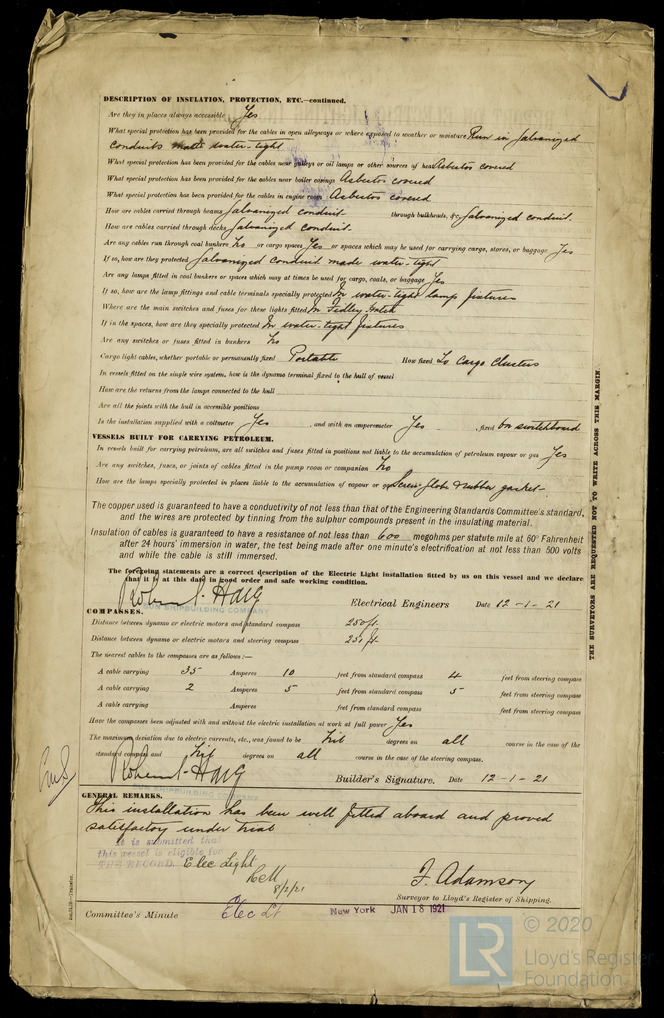 DESCRIPTION OF INSULATION, PROTECTION, ETC.—continued.
Are they in places always accessible Yes
What special protection has been provided for the cables in open alleyways or where exposed to weather or moisture Run in Galvanized
conduits made water-tight
What special protection has been provided for the cables near galleys or oil lamps or other sources of heat Asbestos covered
What special protection has been provided for the cables near boiler casings Asbestos covered
What special protection has been provided for the cables in engine room Asbestos covered
How are cables carried through beams Galvanized conduit through bulkheads, &c. Galvanized conduit.
How are cables carried through decks Galvanized conduit.
Are any cables run through coal bunkers No or cargo spaces Yes or spaces which may be used for carrying cargo, stores, or baggage Yes
If so, how are they protected Galvanized conduit made water-tight
Are any lamps fitted in coal bunkers or spaces which may at times be used for cargo, coals, or baggage Yes
If so, how are the lamp fittings and cable terminals specially protected In water-tight lamp fixtures
Where are the main switches and fuses for these lights fitted In Fidley Hatch
If in the spaces, how are they specially protected In water-tight fixtures
Are any switches or fuses fitted in bunkers No
Cargo light cables, whether portable or permanently fixed Portable How fixed To Cargo Clusters
In vessels fitted on the single wire system, how is the dynamo terminal fixed to the hull of vessel
How are the returns from the lamps connected to the hull
Are all the joints with the hull in accessible positions
Is the installation supplied with a voltmeter Yes , and with an amperemeter Yes , fixed on switchboard
VESSELS BUILT FOR CARRYING PETROLEUM.
In vessels built for carrying petroleum, are all switches and fuses fitted in positions not liable to the accumulation of petroleum vapour or gas Yes
Are any switches, fuses, or joints of cables fitted in the pump room or companion No
How are the lamps specially protected in places liable to the accumulation of vapour or gas Screw globe & rubber gasket
The copper used is guaranteed to have a conductivity of not less than that of the Engineering Standards Committee's standard,
and the wires are protected by tinning from the sulphur compounds present in the insulating material.
Insulation of cables is guaranteed to have a resistance of not less than 600 megohms per statute mile at 60° Fahrenheit
after 24 hours' immersion in water, the test being made after one minute's electrification at not less than 500 volts
and while the cable is still immersed.
The foregoing statements are a correct description of the Electric Light installation fitted by us on this vessel and we declare
that it is at this date in good order and safe working condition.
Robert S. Haig
SHIPBUILDING COMPANY
Electrical Engineers Date 12-1-21
COMPASSES.
Distance between dynamo or electric motors and standard compass 250 ft.
Distance between dynamo or electric motors and steering compass 251 ft.
The nearest cables to the compasses are as follows:—
A cable carrying 35 Amperes 10 feet from standard compass 4 feet from steering compass
A cable carrying 2 Amperes 5 feet from standard compass 5 feet from steering compass
A cable carrying Amperes feet from standard compass feet from steering compass
Have the compasses been adjusted with and without the electric installation at work at full power Yes
The maximum deviation due to electric currents, etc., was found to be Nil degrees on all course in the case of the
standard compass and Nil degrees on all course in the case of the steering compass.
Robert S. Haig
SHIPBUILDING COMPANY
Builder's Signature. Date 12-1-21
GENERAL REMARKS.
This installation has been well fitted aboard and proved
satisfactory under trial
It is submitted that
this vessel is eligible for
THE RECORD. Elec Light
8/2/21
F. Adamson
Surveyor to Lloyd's Register of Shipping.
Committee's Minute Elec Lt New York JAN 18 1921
THE SURVEYORS ARE REQUESTED NOT TO WRITE ACROSS THIS MARGIN.
© 2020
LR
Lloyd's Register
Foundation